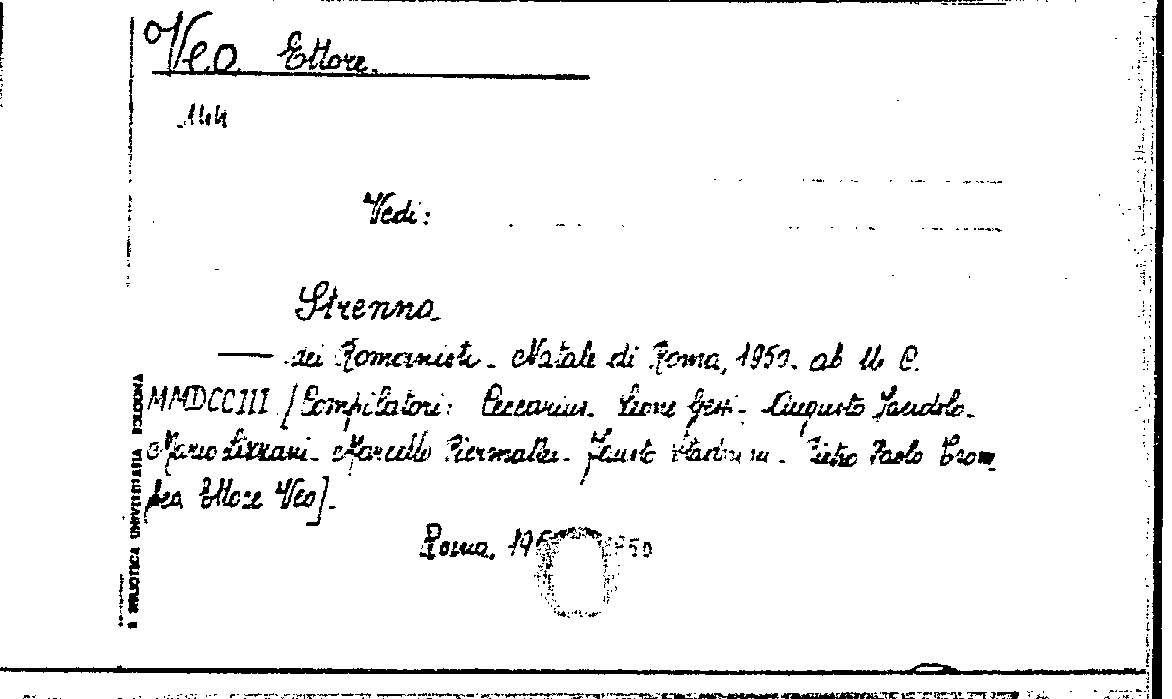 Veo Ettore.
144
Vedi:
Strenna
— dei Romanisti - Natale di Roma, 1950. ab U. C.
MMDCCIII [Compilatori: Ceccarius - Leone Gessi - Augusto Jandolo -
Mario Lizzani - Marcello Piermattei - Fausto Pietro Paolo Trom
bea Ettore Veo] -
Roma, 1950
BIBLIOTICA UNIVERSITARIA BOLOGNA